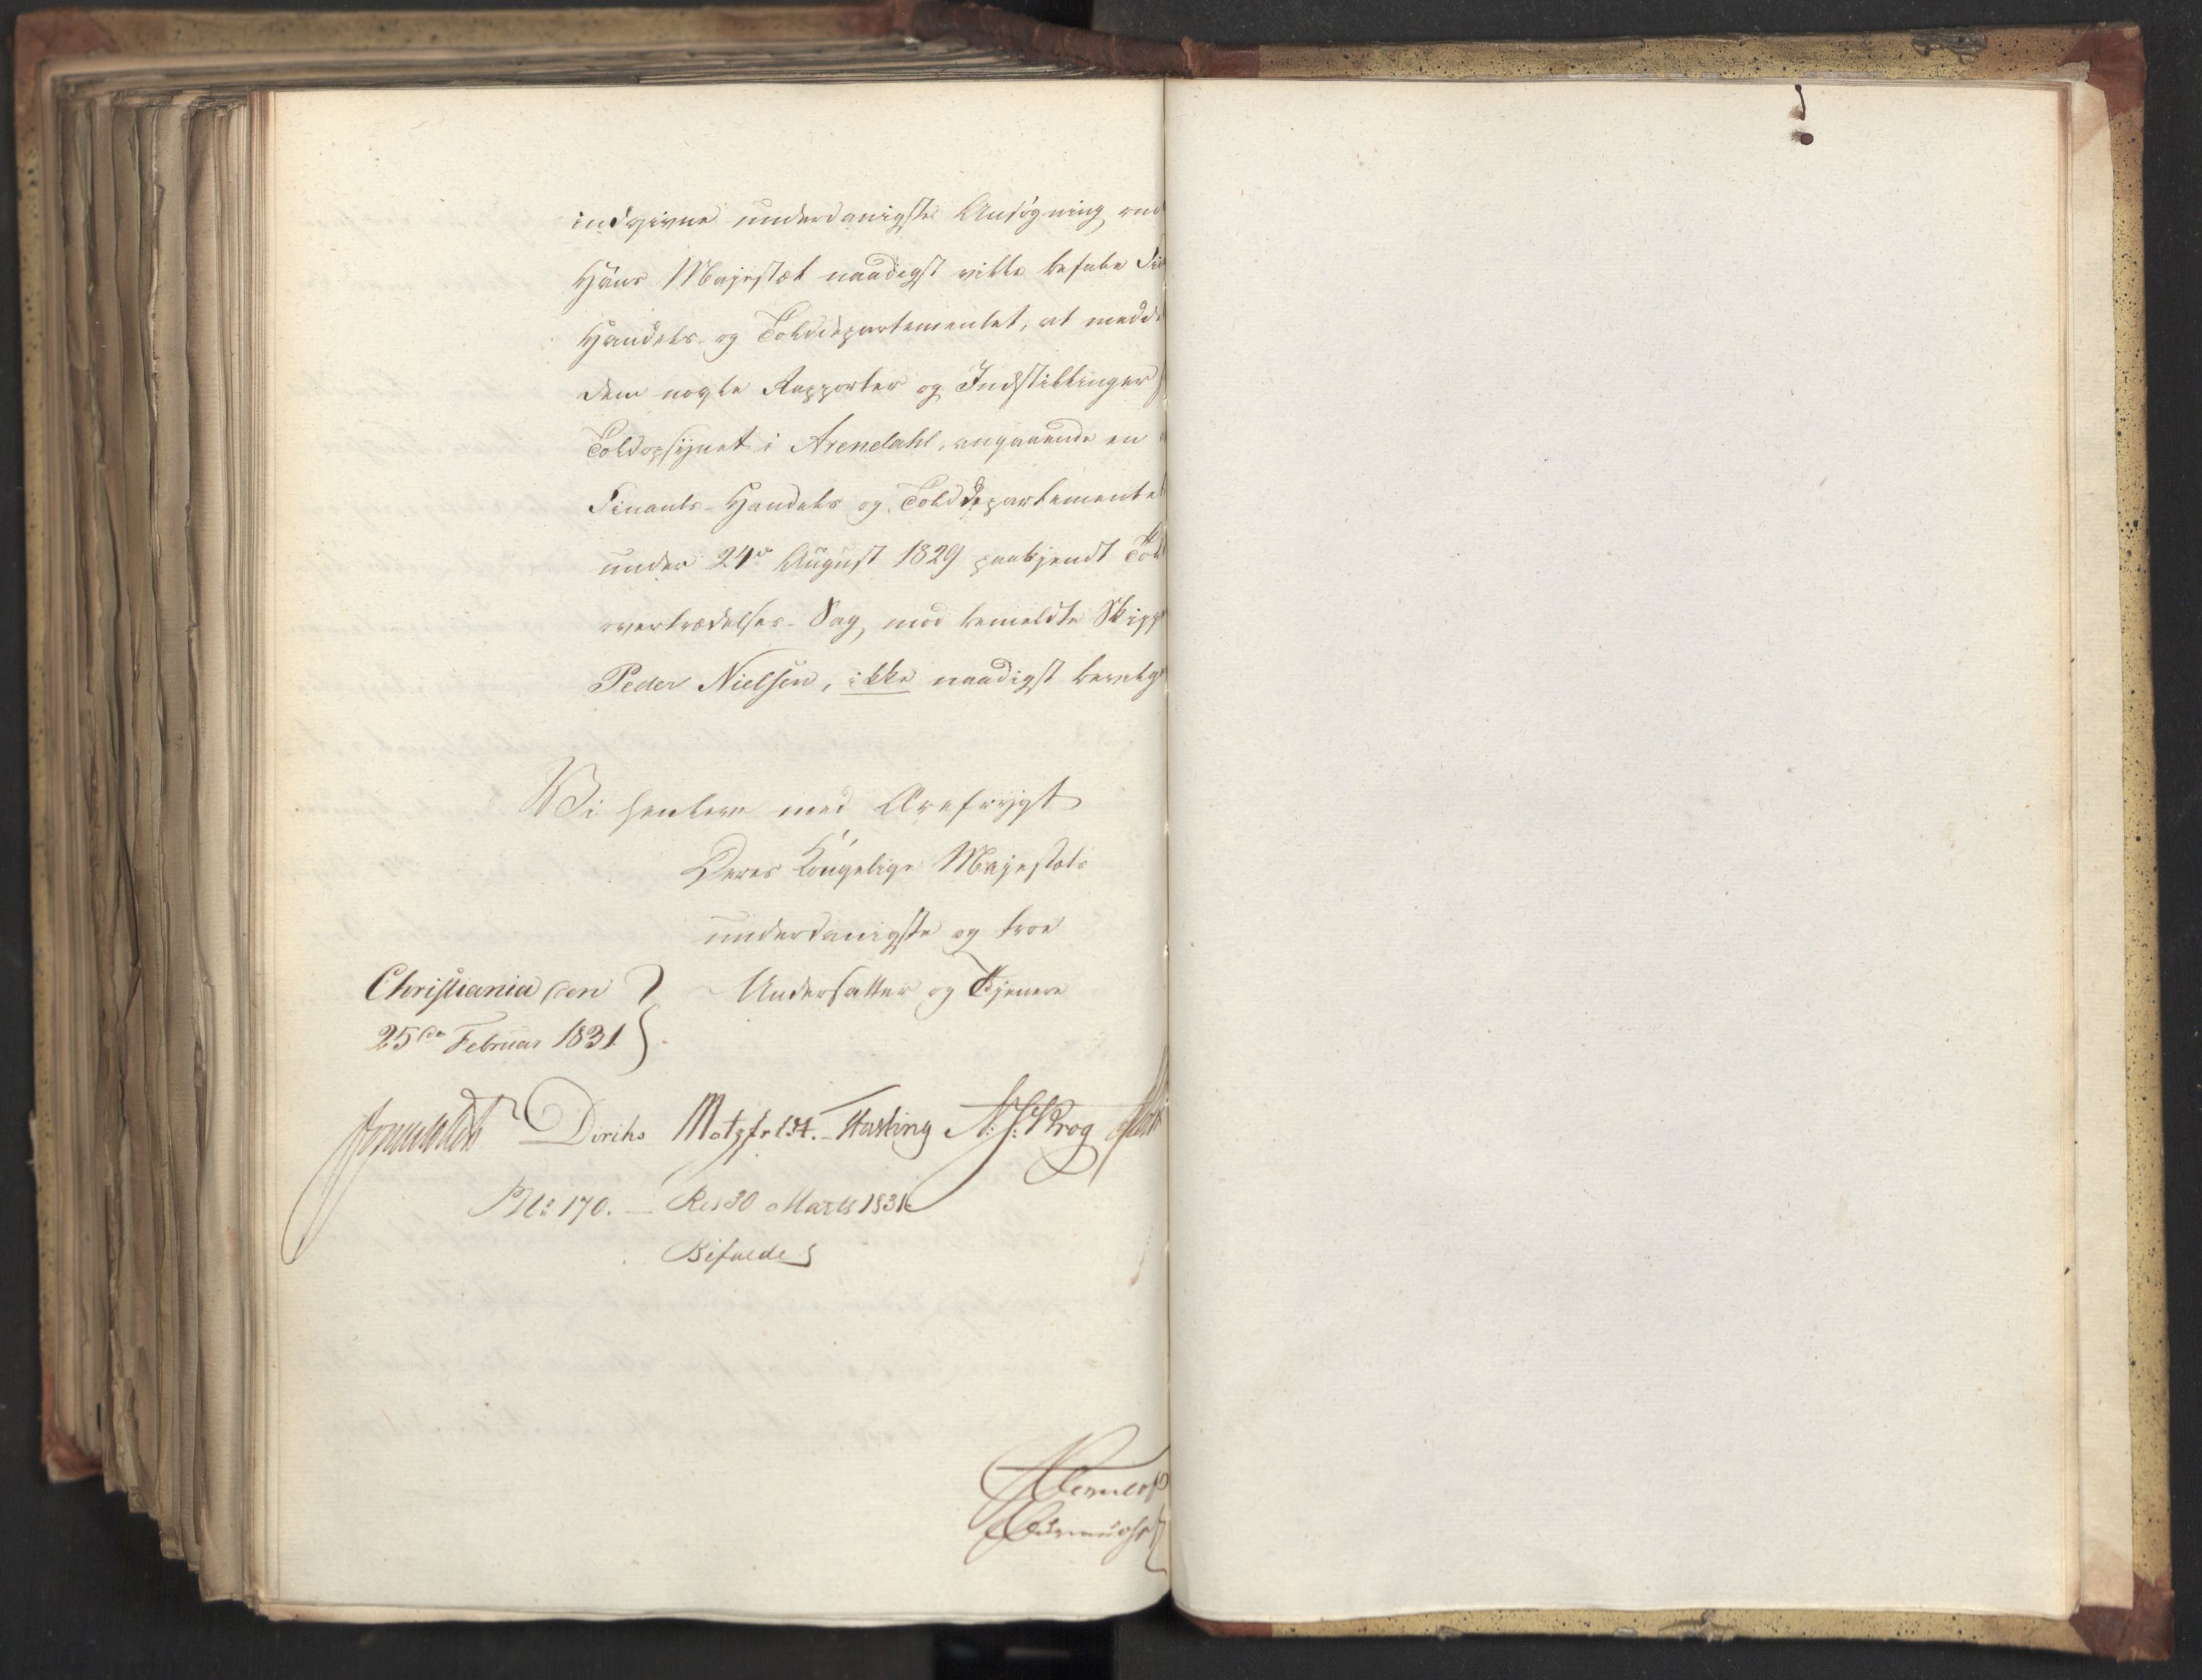 indgivne underdanigste Ansøgning om
Hans Majestæt naadigst vilde befale Fi
Handels- og Tolddepartementet, at medde
dem nogle Rapporter og Indstillinger
Toldopsynet i Arendahl, angaaende en
Finants- Handels og Tolddepartemente
under 24de August 1829 paakjendt Told
overtrædelses-Sag, mod bemeldte Skipp
Peder Nielsen, ikke naadigst bevilg
Vi henleve med Ærefrygt
Deres Kongelige Majestæts
underdanigste og troe
Christiania den Undersatter og Tjenere
25de Februar 1831
Diriks Motzfeldt. Fasting N. J. Krog
No 170. — Res 30 Marts 1831
Bifaldes